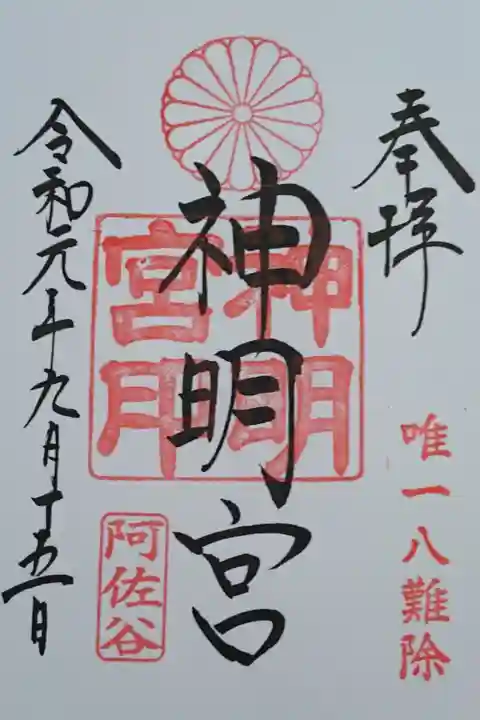 奉拝
唯一八難除
神明宮
神明
宮
令和元年九月十五日
阿佐谷